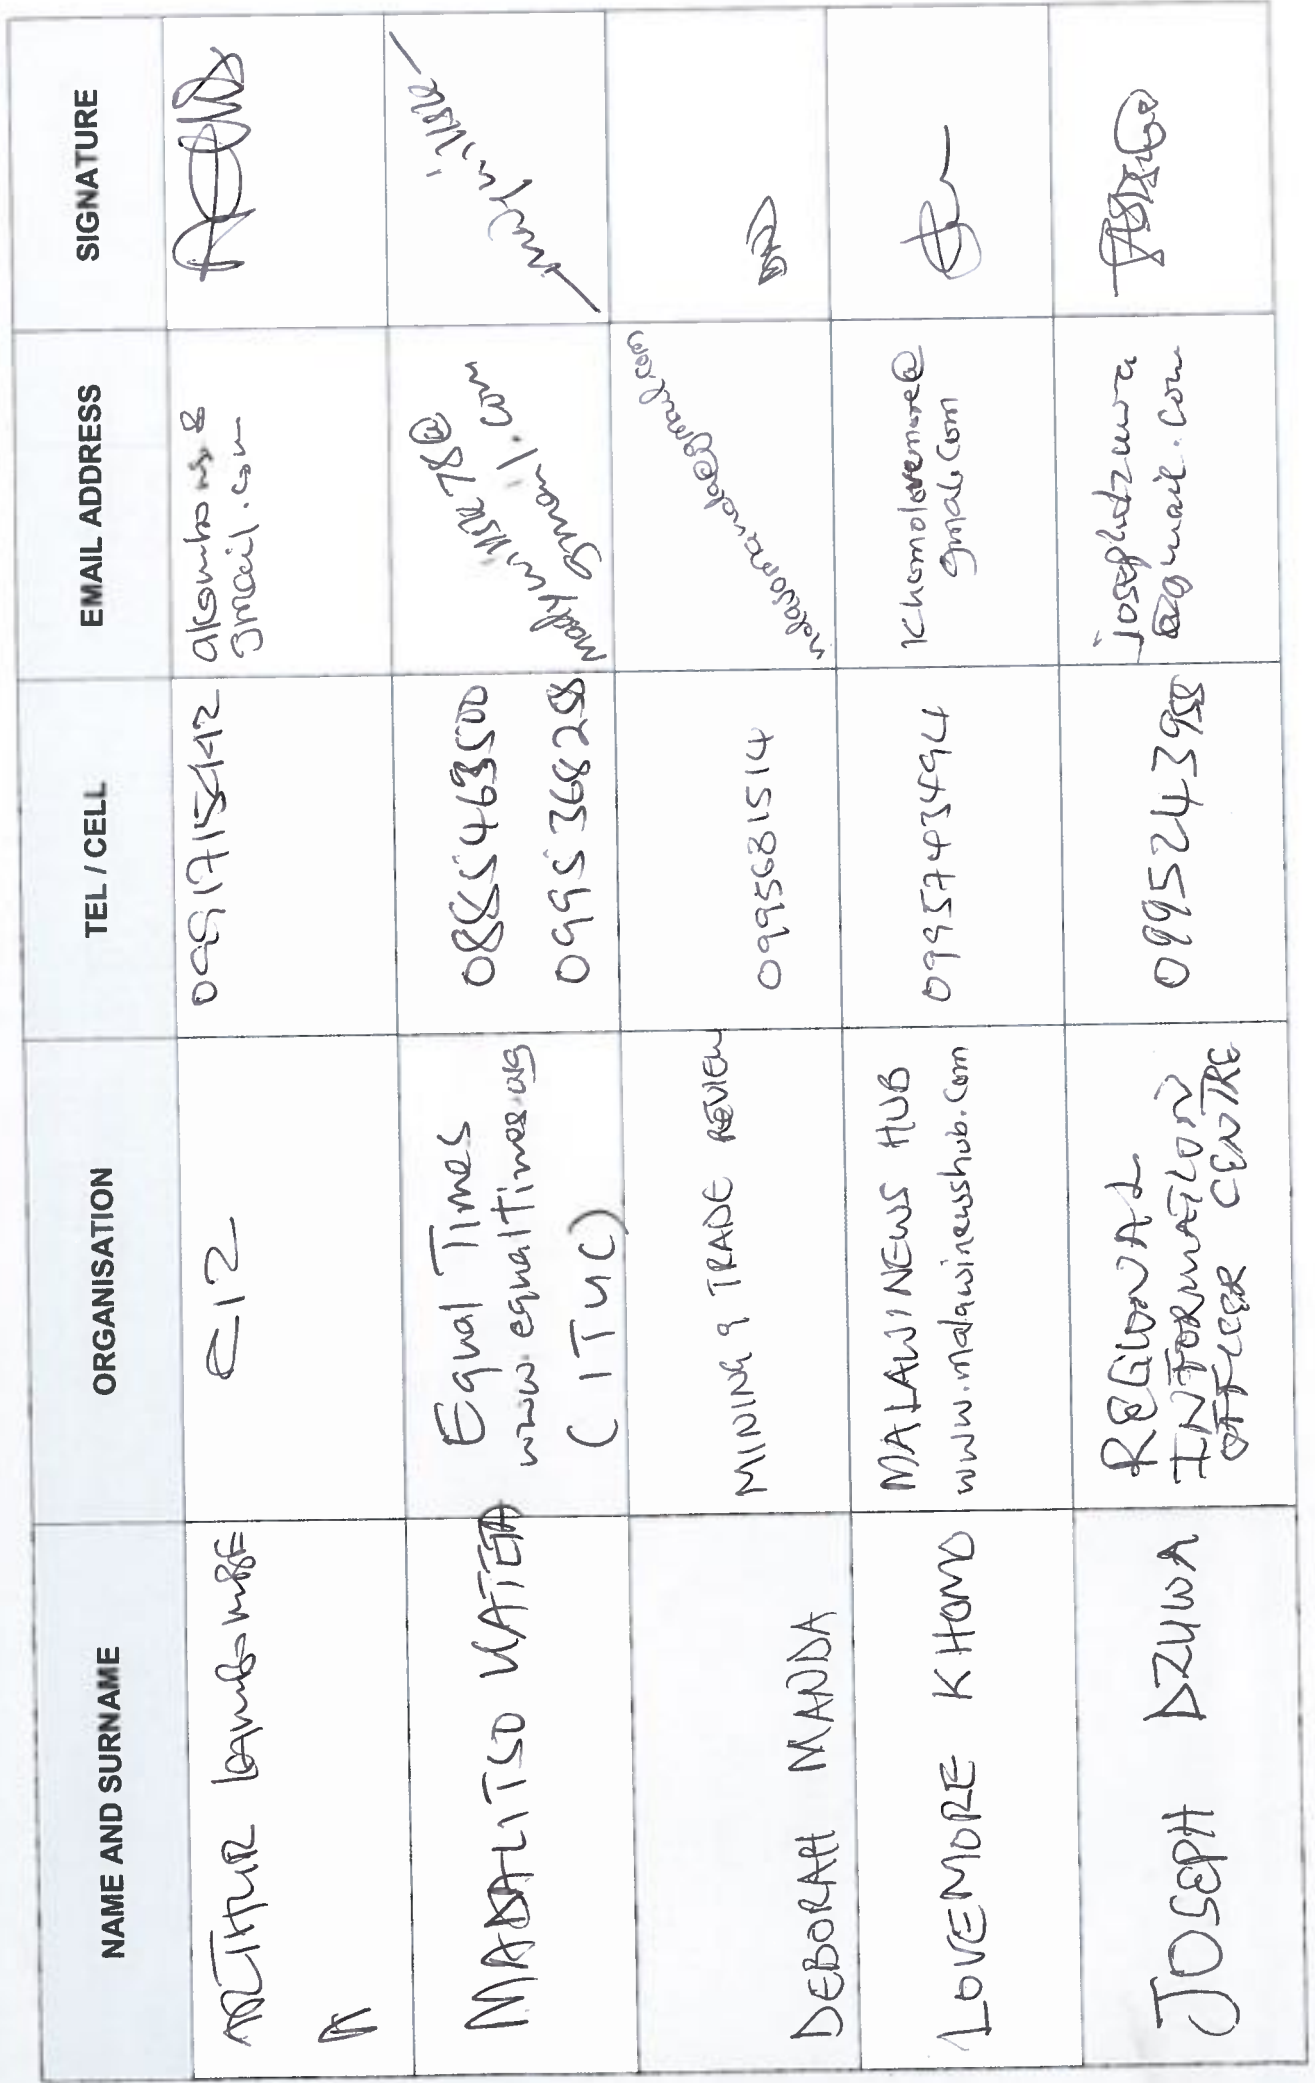 NAME AND SURNAME
ORGANISATION
TEL / CELL
EMAIL ADDRESS
SIGNATURE
ARTHUR
C12
0991715442
gmail.com
MADALITSO KATETA
Equal Times
www.equaltimes.org
(ITUC)
0885463500
0995368288
madywillisk78@
gmail.com
DEBORAH MANDA
MINING & TRADE REVIEW
0995681514
ndasomanda@gmail.com
LOVEMORE KHOMO
MALAWI NEWS HUB
www.malawinewshub.com
0995743494
Khomolovemore@
gmail.com
JOSEPH DZUWA
REGIONAL
INFORMATION
OFFICER CENTRE
josephdzuwa
@gmail.com